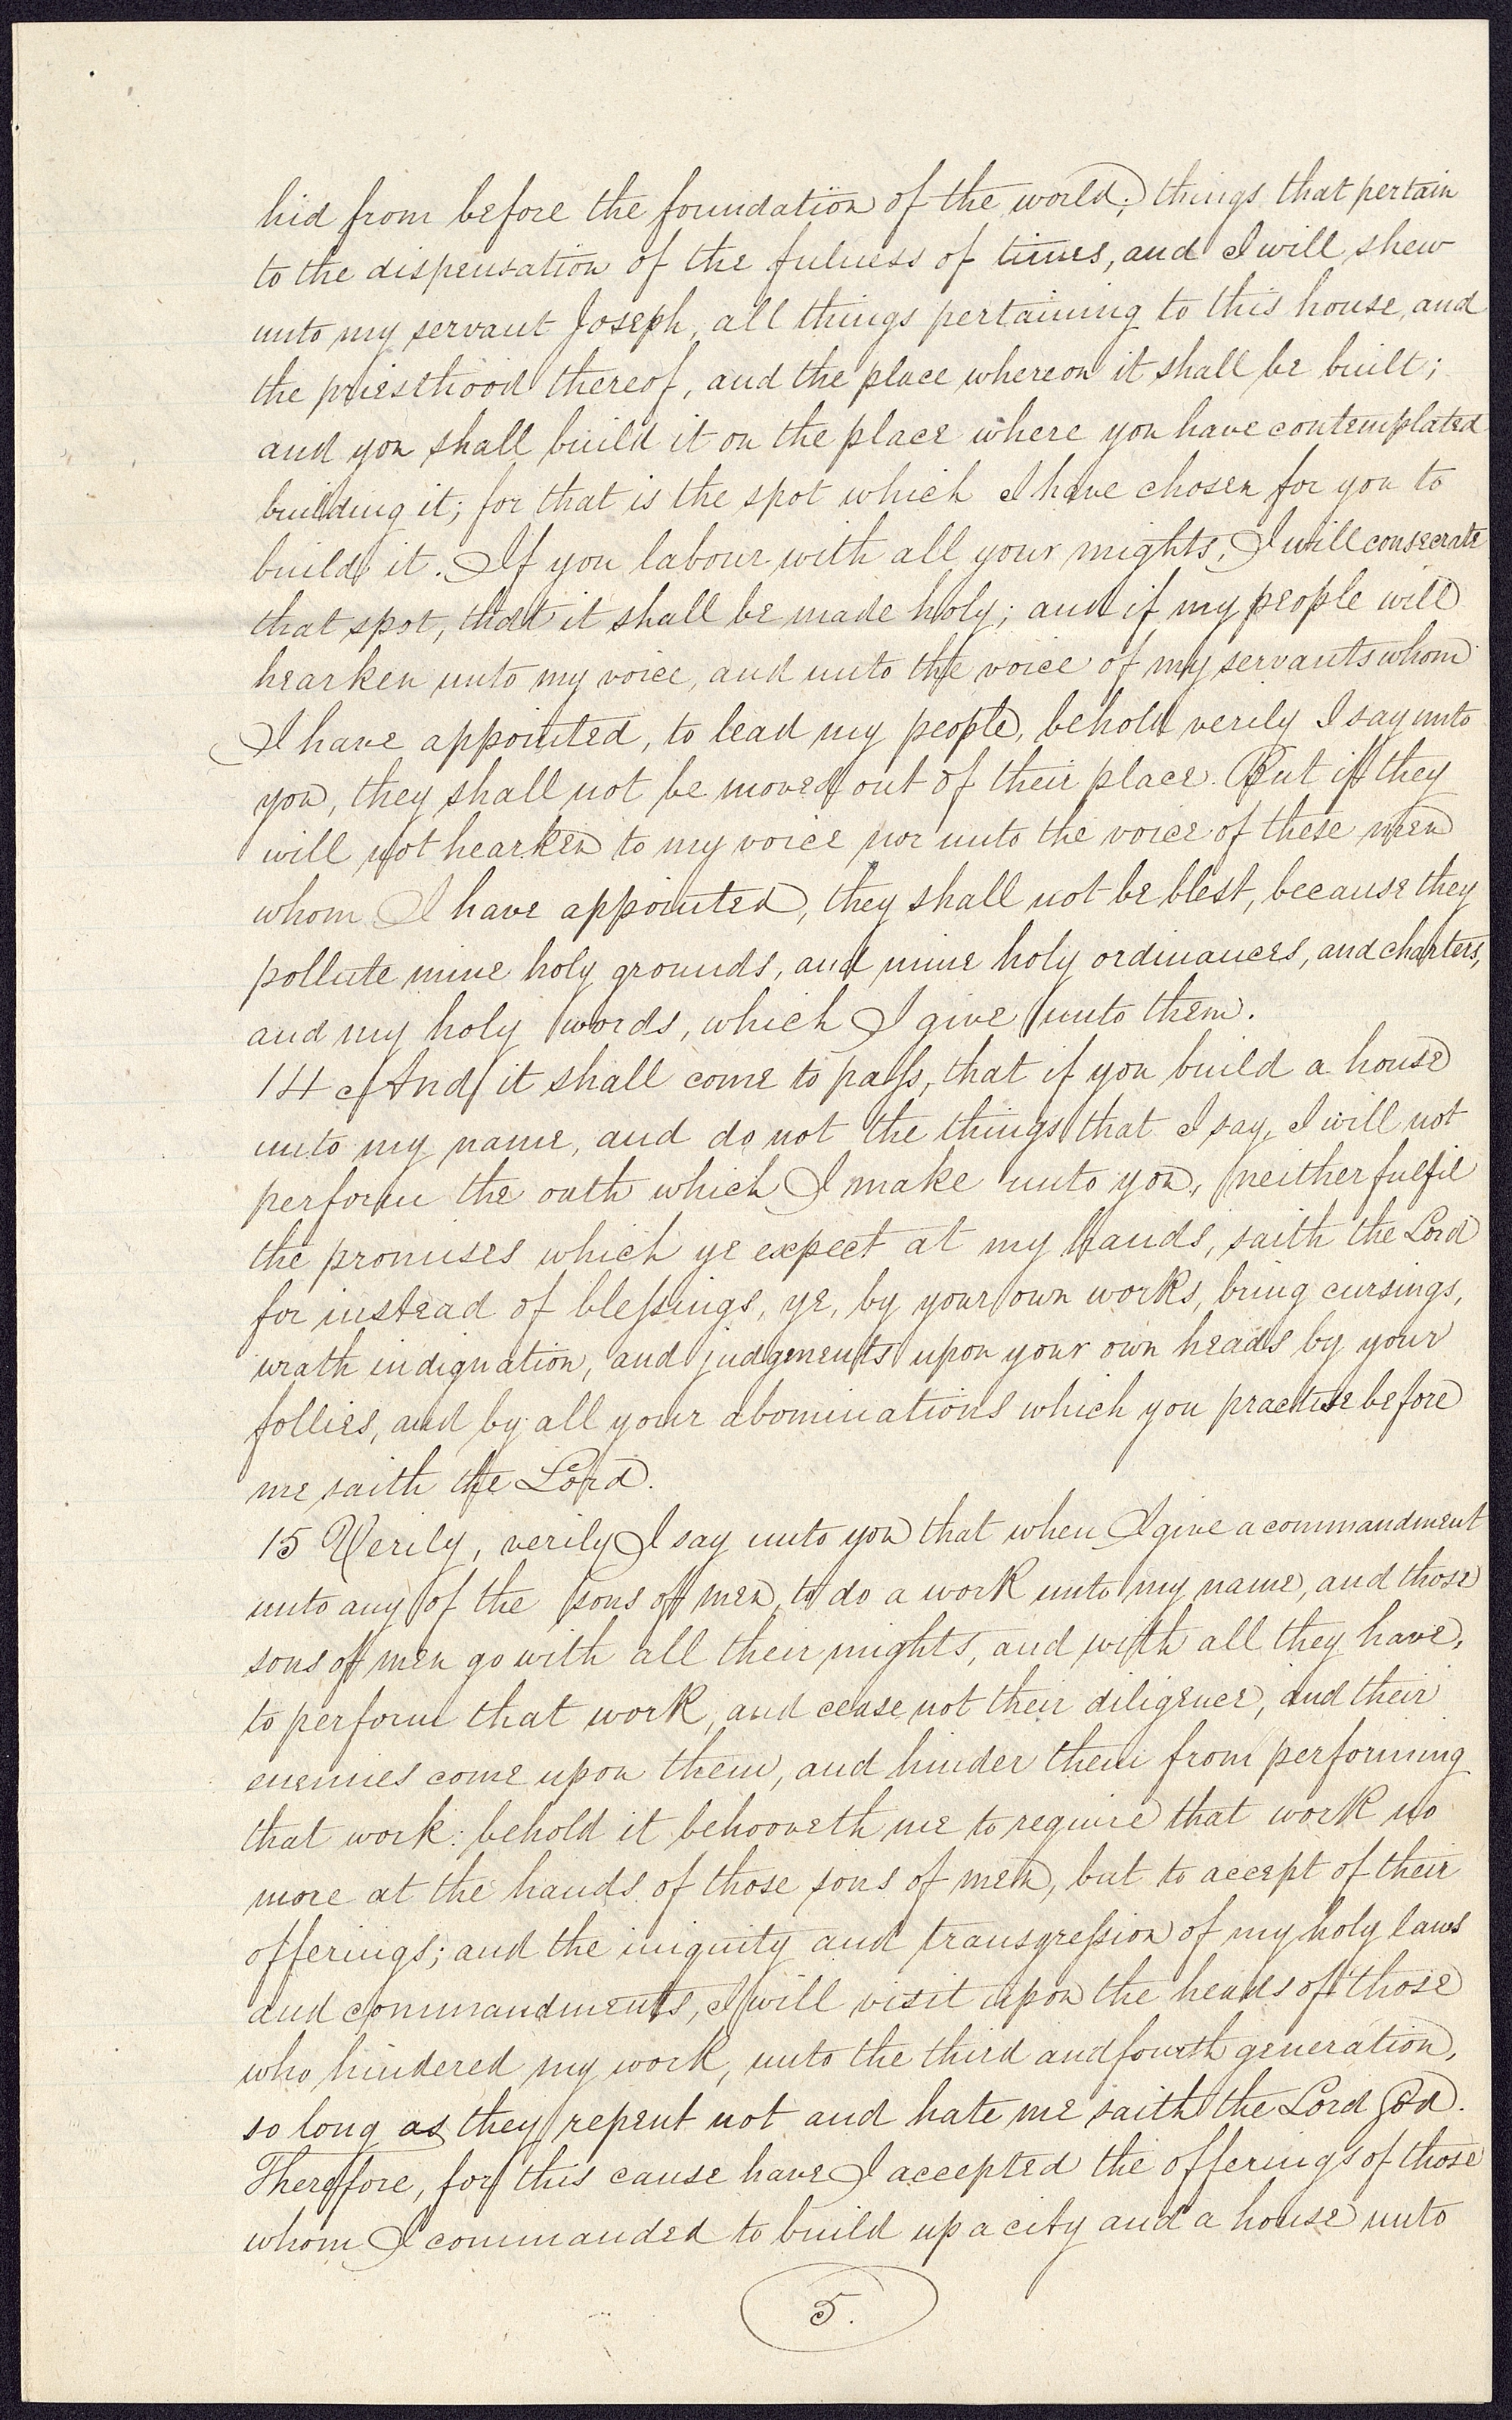 hid from before the foundation of the world; things that pertain
to the dispensation of the fulness of times, and I will shew
unto my servant Joseph, all things pertaining to this house, and
the priesthood thereof, and the place whereon it shall be built;
and you shall build it on the place where you have contemplated
building it; for that is the spot which I have chosen for you to
build it. If you labour with all your mights, I will consecrate
that spot, that it shall be made holy; and if my people will
hearken unto my voice, and unto the voice of my servants whom
I have appointed, to lead my people, behold verily I say unto
you, they shall not be moved out of their place. But if they
will not hearken to my voice nor unto the voice of these men
whom I have appointed, they shall not be blest, because they
pollute mine holy grounds, and mine holy ordinances, and charters,
and my holy words, which I give unto them.
14 And it shall come to pass, that if you build a house
unto my name, and do not the things that I say, I will not
perform the oath which I make unto you, neither fulfil
the promises which ye expect at my hands, saith the Lord
for instead of blessings, ye, by your own works, bring cursings,
wrath indignation, and judgments upon your own heads by your
follies, and by all your abominations which you practise before
me saith the Lord.
15 Verily, verily I say unto you that when I give a commandment
unto any of the sons of men, to do a work unto my name, and those
sons of men go with all their mights, and with all they have,
to perform that work, and cease not their diligence, and their
enemies come upon them, and hinder them from performing
that work: behold it behooveth me to require that work no
more at the hands of those sons of men, but to accept of their
offerings; and the iniquity and transgression of my holy laws
and commandments, I will visit upon the heads of those
who hindered my work, unto the third and fourth generation,
so long as they repent not and hate me saith the Lord God.
Therefore, for this cause have I accepted the offerings of those
whom I commanded to build up a city and a house unto
5.